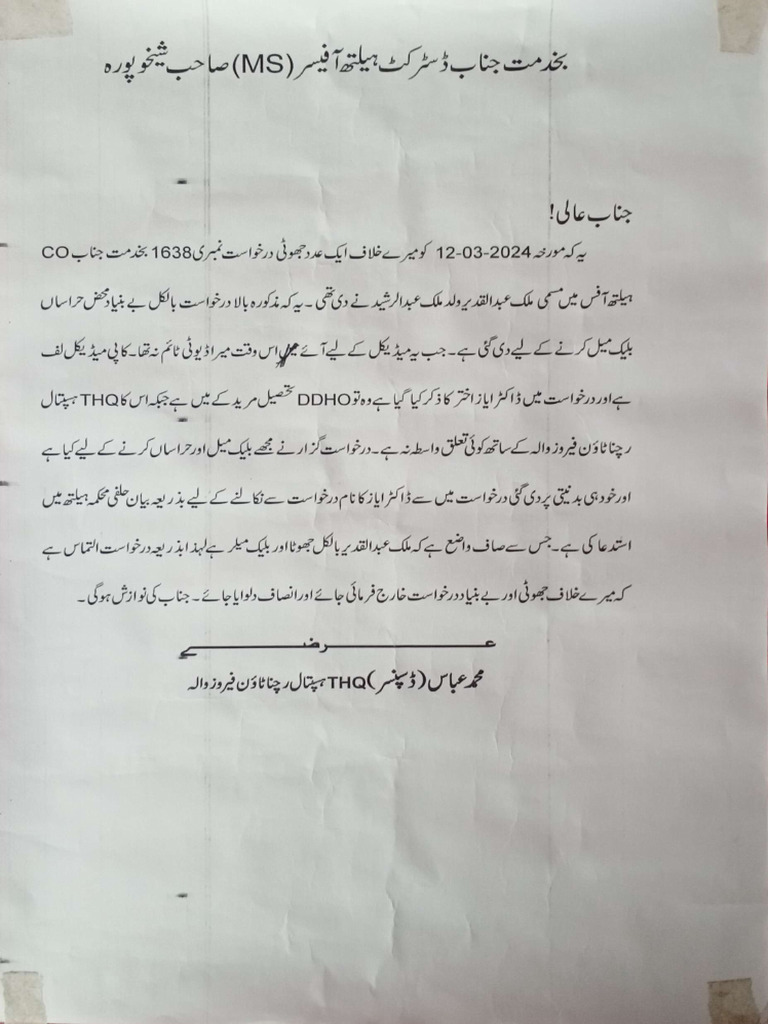 بخدمت جناب ڈسٹرکٹ ہیلتھ آفیسر (MS) صاحب شیخوپورہ
جناب عالی!
یہ کہ مورخہ 12-03-2024 کو میرے خلاف ایک عدد جھوٹی درخواست نمبری 1638 بخدمت جناب CO
ہیلتھ آفس میں مسمی ملک عبدالقدیر ولد ملک عبدالرشید نے دی تھی۔ یہ کہ مذکورہ بالا درخواست بالکل بے بنیاد محض حراساں
بلیک میل کرنے کے لیے دی گئی ہے۔ جب یہ میڈیکل کے لیے آئے اس وقت میرا ڈیوٹی ٹائم نہ تھا۔ کاپی میڈیکل لف
ہے اور درخواست میں ڈاکٹر ایاز اختر کا ذکر کیا گیا ہے وہ تو DDHO تحصیل مریدکے میں ہے جبکہ اس کا THQ ہسپتال
رچنا ٹاؤن فیروزوالہ کے ساتھ کوئی تعلق واسطہ نہ ہے۔ درخواست گزار نے مجھے بلیک میل اور حراساں کرنے کے لیے کیا ہے
اور خود ہی بدنیتی پر دی گئی درخواست میں سے ڈاکٹر ایاز کا نام درخواست سے نکالنے کے لیے بذریعہ بیان حلفی محکمہ ہیلتھ میں
استدعا کی ہے۔ جس سے صاف واضع ہے کہ ملک عبدالقدیر بالکل جھوٹا اور بلیک میلر ہے لہذا بذریعہ درخواست التماس ہے
کہ میرے خلاف جھوٹی اور بے بنیاد درخواست خارج فرمائی جائے اور انصاف دلوایا جائے۔ جناب کی نوازش ہوگی۔
عرضے
محمد عباس (ڈسپنسر) THQ ہسپتال رچنا ٹاؤن فیروزوالہ